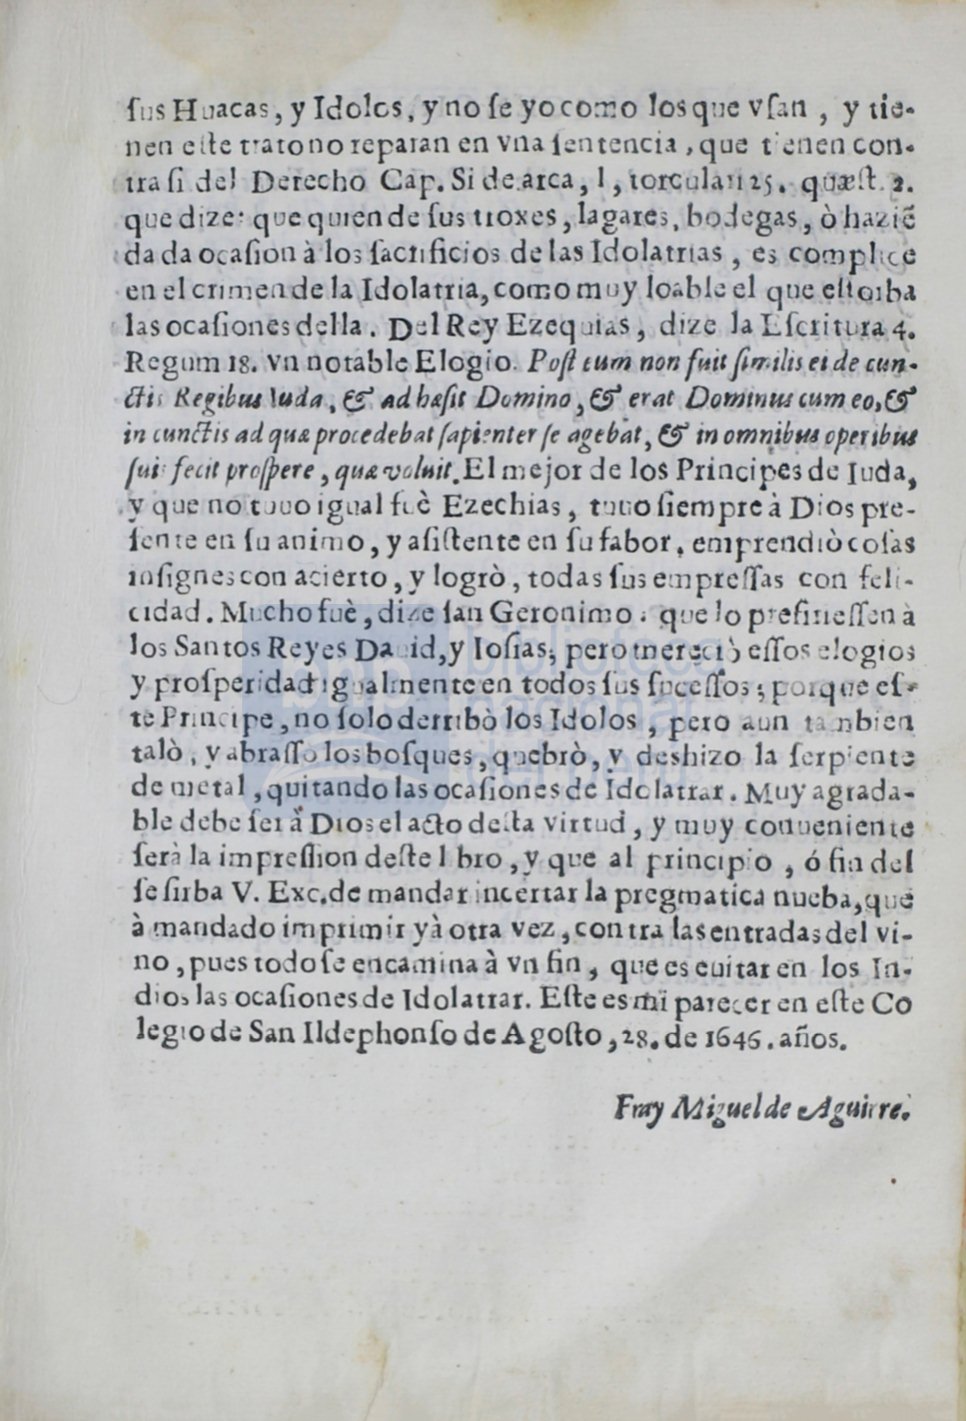 ſus Huacas, y Idolos, y no ſe yo como los que vſan , y tie-
nen eſte trato no reparan en vna ſentencia , que tienen con-
tra ſi del Derecho Cap. Si de arca, l , torculari 25. quæſt. 2.
que dize: que quien de ſus troxes , lagares, bodegas , ò haziẽ
da da ocaſion à los ſacrificios de las Idolatrias , es complice
en el crimen de la Idolatria, como muy loable el que eſtorba
las ocaſiones della . Del Rey Ezequias , dize la Eſcritura 4.
Regum 18. vn notable Elogio. Poſt eum non fuit ſimilis ei de cun-
ctis Regibus Iuda , & adhæſit Domino , & erat Dominus cum eo, &
in cunctis ad quæ procedebat ſapienter ſe agebat, & in omnibus operibus
ſuis fecit proſpere , quæ voluit. El mejor de los Principes de Iuda,
y que no tuuo igual fuè Ezechias , tuuo ſiempre à Dios pre-
ſente en ſu animo, y aſiſtente en ſu fabor, emprendiò coſas
inſignes con acierto, y logrò , todas ſus empreſſas con feli-
cidad. Mucho fuè , dize ſan Geronimo : que lo prefirieſſen à
los Santos Reyes Dauid, y Ioſias; pero mereciò eſſos elogios
y proſperidad igualmente en todos ſus ſuceſſos ; porque eſ-
te Principe , no ſolo derribò los Idolos , pero aun tambien
talò , y abraſſo los boſques , quebrò, y deshizo la ſerpiente
de metal , quitando las ocaſiones de Idolatrar. Muy agrada-
ble debe ſer à Dios el acto deſta virtud , y muy conueniente
ſerà la impreſſion deſte libro , y que al principio , ó fin del
ſe ſirba V. Exc. de mandar incertar la pregmatica nueba, que
à mandado imprimir yà otra vez , contra las entradas del vi-
no , pues todo ſe encamina à vn fin , que es euitar en los In-
dios las ocaſiones de Idolatrar. Eſte es mi parecer en eſte Co
legio de San Ildephonſo de Agoſto , 28. de 1646. años.
Fray Miguel de Aguirre.
biblioteca
nacional
del perú